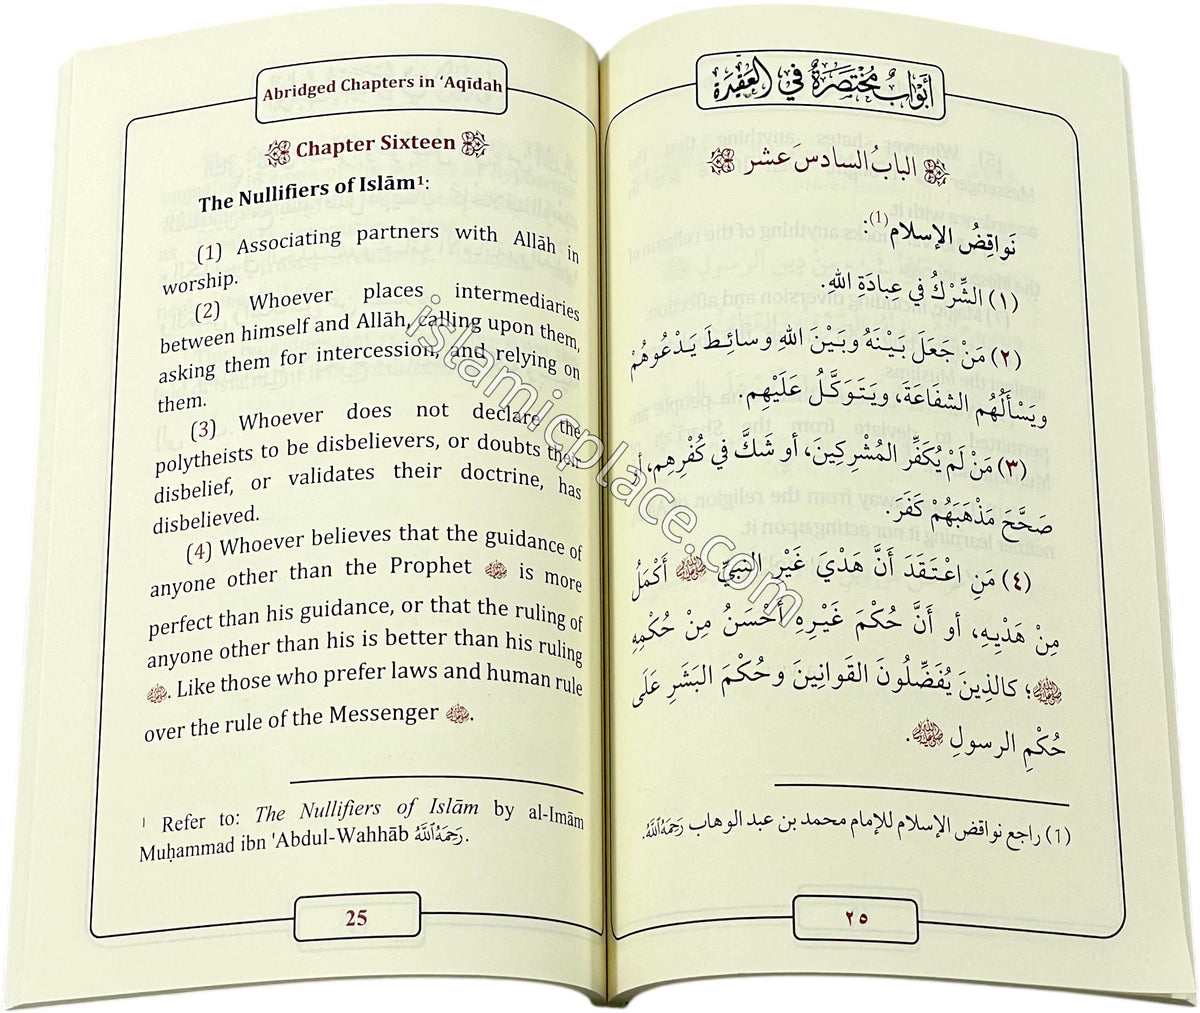 Abridged Chapters in ‘Aqīdah
Chapter Sixteen
The Nullifiers of Islām¹:
(1) Associating partners with Allāh in
worship.
(2) Whoever places intermediaries
between himself and Allāh, calling upon them,
asking them for intercession, and relying on
them.
(3) Whoever does not declare the
polytheists to be disbelievers, or doubts their
disbelief, or validates their doctrine, has
disbelieved.
(4) Whoever believes that the guidance of
anyone other than the Prophet ﷺ is more
perfect than his guidance, or that the ruling of
anyone other than his is better than his ruling
ﷺ. Like those who prefer laws and human rule
over the rule of the Messenger ﷺ.
¹ Refer to: The Nullifiers of Islām by al-Imām
Muḥammad ibn 'Abdul-Wahhāb رَحِمَهُ ٱللَّهُ.
25
أَبْوَابٌ مُخْتَصَرَةٌ فِي العَقِيْدَةِ
البابُ السادسَ عشر
نَواقِضُ الإسلام(1):
(١) الشِّرْكُ في عِبادَةِ اللهِ.
(٢) مَنْ جَعَلَ بَيْنَهُ وبَيْنَ اللهِ وسائِطَ يَدْعُوهُمْ
ويَسْأَلُهُم الشفَاعَةَ، ويَتَوَكَّلُ عَلَيْهِم.
(٣) مَنْ لَمْ يُكَفِّر المُشْرِكِينَ، أو شَكَّ في كُفْرِهِم، أو
صَحَّحَ مَذْهَبَهُمْ كَفَرَ.
(٤) مَنِ اعْتَقَدَ أَنَّ هَدْيَ غَيْرِ النبيِّ ﷺ أَكْمَلُ
مِنْ هَدْيِهِ، أو أَنَّ حُكْمَ غَيْرِهِ أَحْسَنُ مِنْ حُكْمِهِ
ﷺ؛ كالذِينَ يُفَضِّلُونَ القَوانِينَ وحُكْمَ البَشَرِ عَلَى
حُكْمِ الرسولِ ﷺ.
(1) راجع نواقض الإسلام للإمام محمد بن عبد الوهاب رَحِمَهُ ٱللَّهُ.
٢٥
islamicplace.com